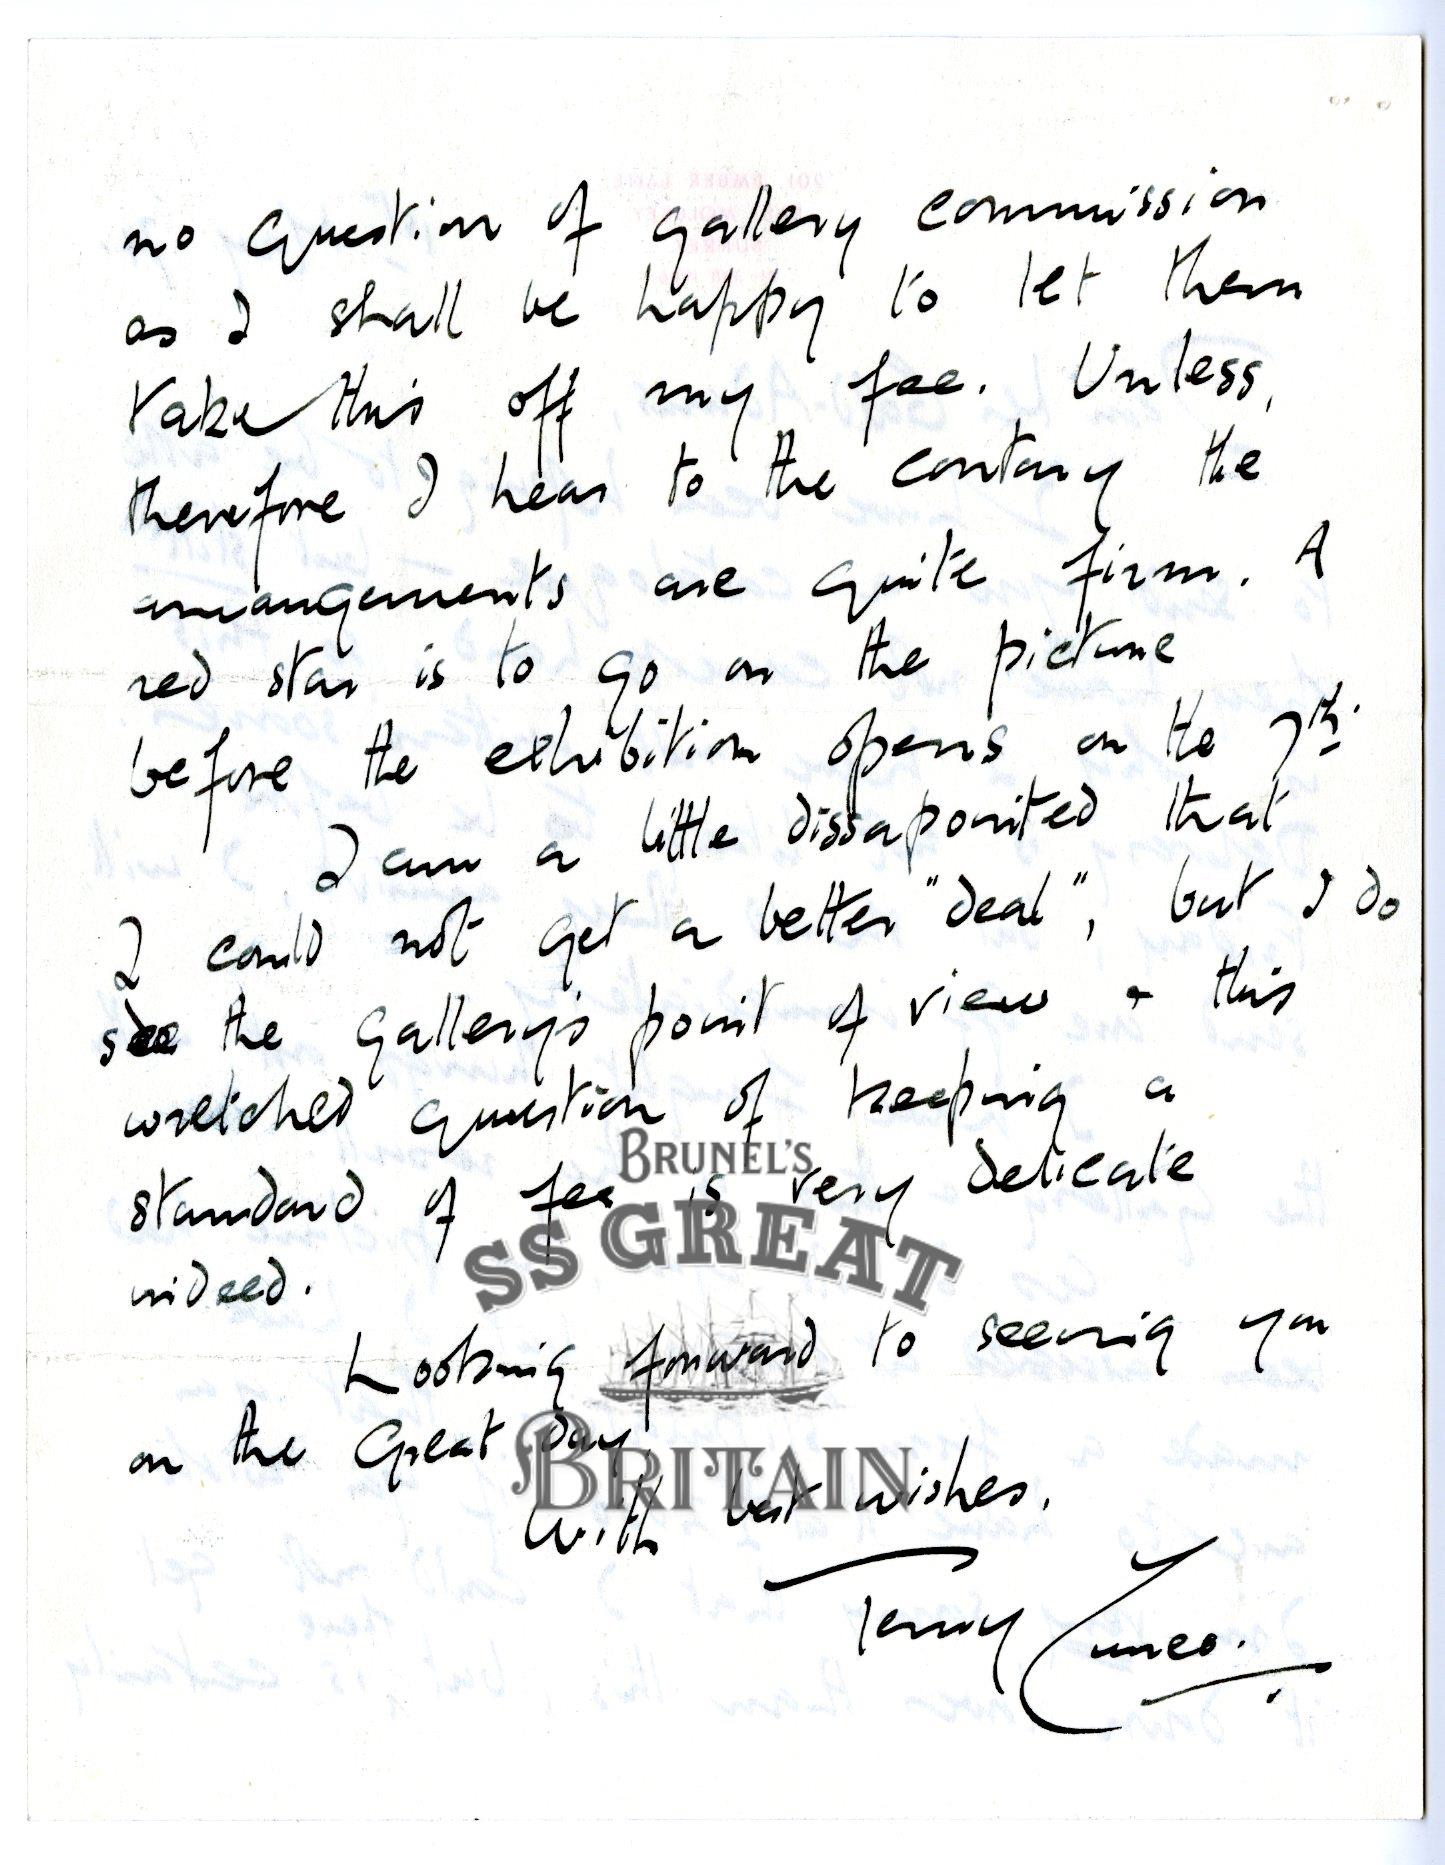 no question of gallery commission
as I shall be happy to let them
take this off my fee. Unless,
therefore I hear to the contary the
arrangements are quite firm. A
red star is to go on the picture
before the exhibition opens on the 7th.
I am a little dissapointed that
I could not get a better "deal", but I do
see the gallery's point of view & this
wretched question of keeping a
standard of fee is very delicate
indeed.
Looking forward to seeing you
on the Great Day,
With best wishes,
Terry Cuneo.
BRUNEL'S
SS GREAT
BRITAIN